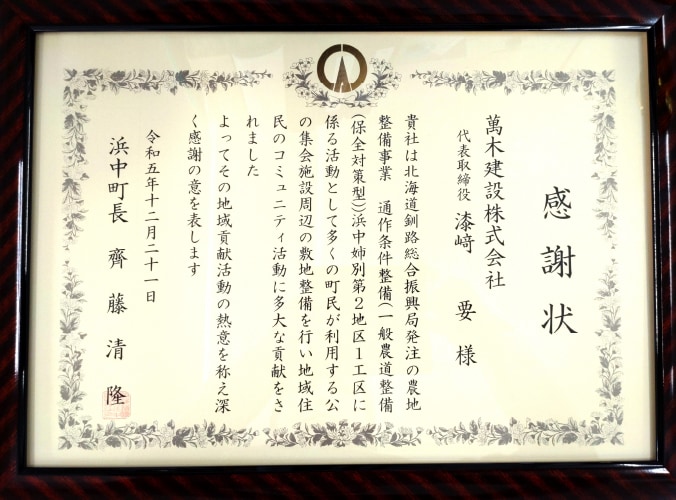 感謝状
萬木建設株式会社
代表取締役 漆﨑 要 様
貴社は北海道釧路総合振興局発注の農地
整備事業 通作条件整備(一般農道整備
(保全対策型))浜中姉別第2地区1工区に
係る活動として多くの町民が利用する公
の集会施設周辺の敷地整備を行い地域住
民のコミュニティ活動に多大な貢献をさ
れました
よってその地域貢献活動の熱意を称え深
く感謝の意を表します
令和五年十二月二十一日
浜中町長 齊藤清隆